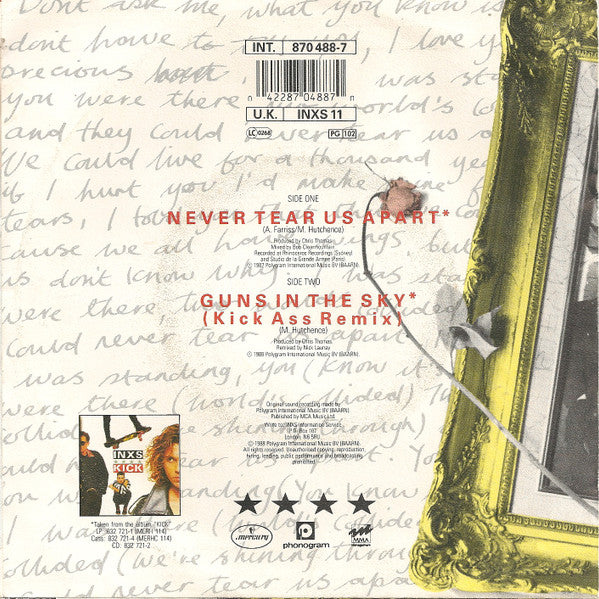 Dont ask me, what you know is
dont have to I love y
precious heart was sta
you were there world's co
and they could tear us a
We could live for a thousand ye
if I hurt you I'd make
tears, I
cause we all have wings, but
us dont know why
was standing
could never tear us apart
was standing, you (know it's
were there (world collided)
standing (You know
I was there (world collided)
ollided (we're shining through
could never tear us apa
INT. 870 488-7
0 42287 04887 0
U.K. INXS 11
LC 0268
PG 102
SIDE ONE
NEVER TEAR US APART*
(A. Farriss/M. Hutchence)
Produced by Chris Thomas
Mixed by Bob Clearmountain
Recorded at Rhinoceros Recordings (Sydney)
and Studio de la Grande Armée (Paris)
℗ 1987 Polygram International Music BV (BAARN)
SIDE TWO
GUNS IN THE SKY*
(Kick Ass Remix)
(M. Hutchence)
Produced by Chris Thomas
Remixed by Nick Launay
℗ 1988 Polygram International Music BV (BAARN)
Original sound recording made by
Polygram International Music BV (BAARN)
Published by MCA Music Ltd.
Write to: INXS Information Service
P.O. Box 107
London, N6 5RU
© 1988 Polygram International Music BV (BAARN)
All rights reserved. Unauthorised copying, reproduction,
hiring, lending, public performance and broadcasting
prohibited
INXS
KICK
*Taken from the album, 'KICK'
LP: 832 721-1 (MERH 114)
Cass: 832 721-4 (MERHC 114)
CD: 832 721-2
mercury
phonogram
MMA